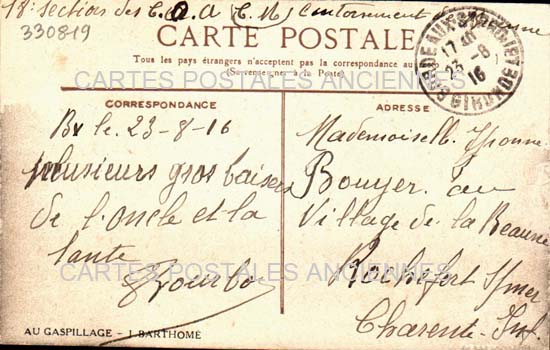 18e sections des C.O.A (C.M) Cantonnement de
330819
CARTE POSTALE
Tous les pays étrangers n'acceptent pas la correspondance au
(Se renseigner à la Poste)
CARTES POSTALES ANCIENNES
CORRESPONDANCE
Bx le 23-8-16
plusieurs gros baisers
de l'oncle et la
tante
ADRESSE
Mademoiselle Yvonne
Bouyer au
Village de la Beaune
Rochefort S/mer
Charente Inf
BORDEAUX
GIRONDE
17 40
23 -8
16
CARTES POSTALES ANCIENNES
AU GASPILLAGE - J. BARTHOMÉ